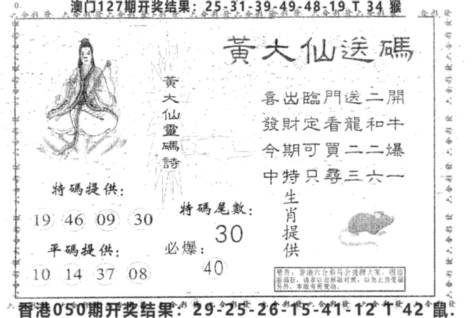 澳门127期开奖结果：25-31-39-49-48-19 T 34 猴
黃大仙送碼
黃大仙靈碼詩
喜出臨門送二開
發財定看龍和牛
今期可買二二爆
中特只尋三六一
生肖提供
特碼提供：
19 46 09 30
平碼提供：
10 14 37 08
特碼尾數：
30
必爆：
40
香港050期开奖结果：29-25-26-15-41-12 T 42 鼠.